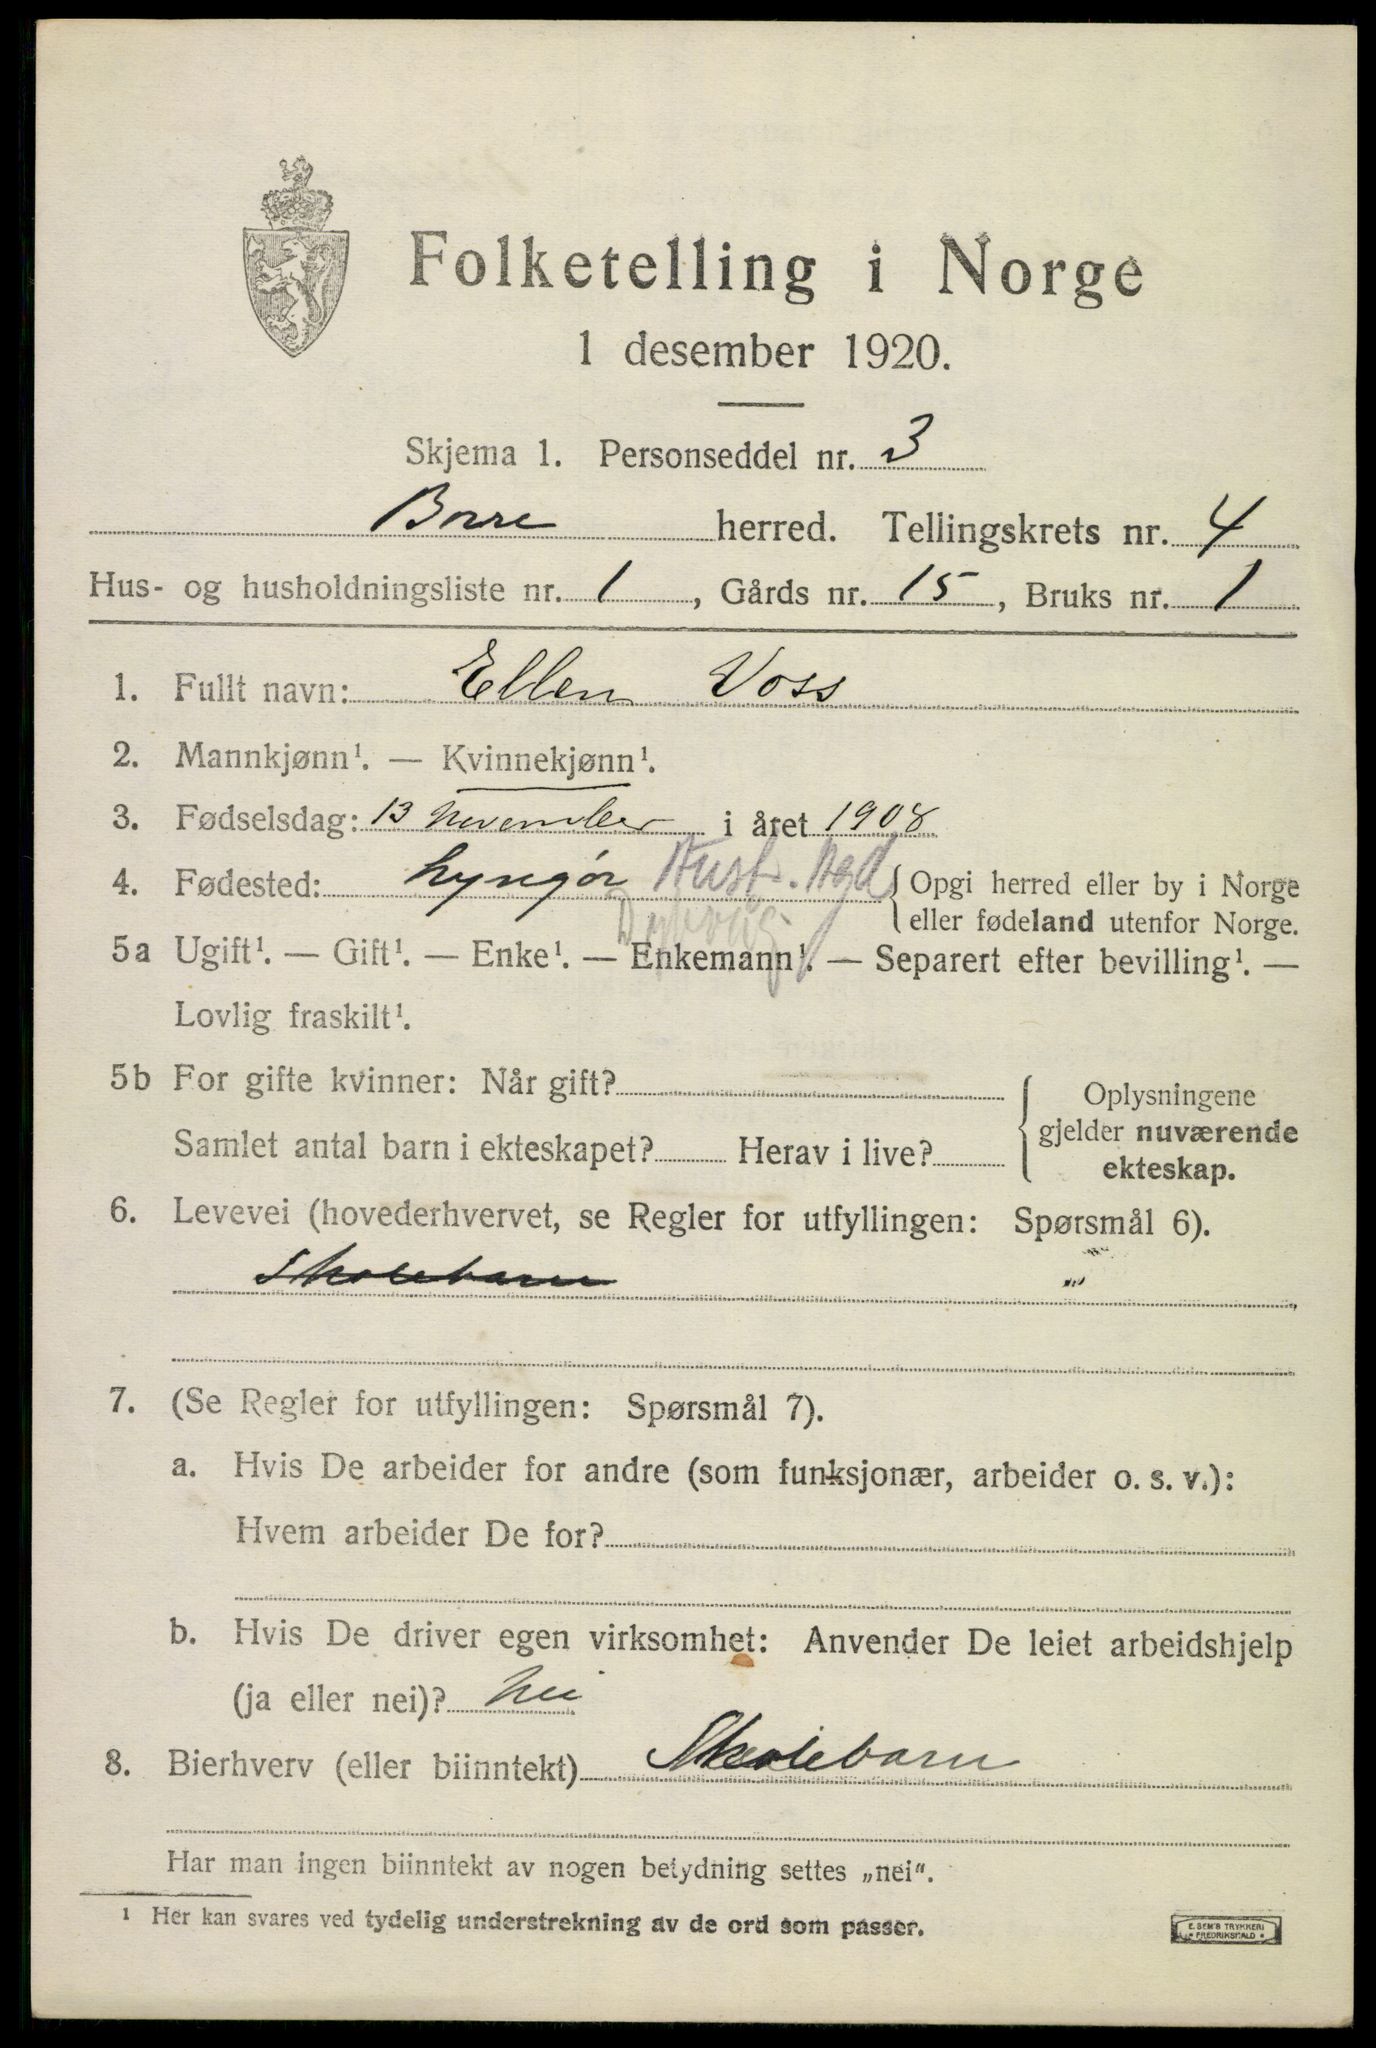 Folketelling i Norge
1 desember 1920.
Skjema 1. Personseddel nr. 3
Borre herred. Tellingskrets nr. 4
Hus- og husholdningsliste nr. 1, Gårds nr. 15, Bruks nr. 1
1. Fullt navn: Ellen Voss
2. Mannkjønn¹. — Kvinnekjønn¹.
3. Fødselsdag: 13 November i året 1908
4. Fødested: Lyngør Aust. Agd { Opgi herred eller by i Norge
Dypvåg eller fødeland utenfor Norge.
5a Ugift¹. — Gift¹. — Enke¹. — Enkemann¹. — Separert efter bevilling¹. —
Lovlig fraskilt¹.
5b For gifte kvinner: Når gift? { Oplysningene
gjelder nuværende
Samlet antal barn i ekteskapet? Herav i live?
ekteskap.
6. Levevei (hovederhvervet, se Regler for utfyllingen: Spørsmål 6).
Skolebarn
7. (Se Regler for utfyllingen: Spørsmål 7).
a. Hvis De arbeider for andre (som funksjonær, arbeider o. s. v.):
Hvem arbeider De for?
b. Hvis De driver egen virksomhet: Anvender De leiet arbeidshjelp
(ja eller nei)? Nei
8. Bierhverv (eller biinntekt) Skolebarn
Har man ingen biinntekt av nogen betydning settes „nei“.
¹ Her kan svares ved tydelig understrekning av de ord som passer.
E. SEM'S TRYKKERI
FREDRIKSHALD